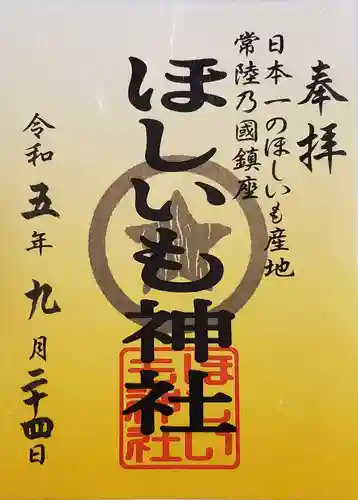 奉拝
日本一のほしいも産地
常陸乃國鎮座
ほしいも神社
ほしい
も神社
令和五年九月二十四日